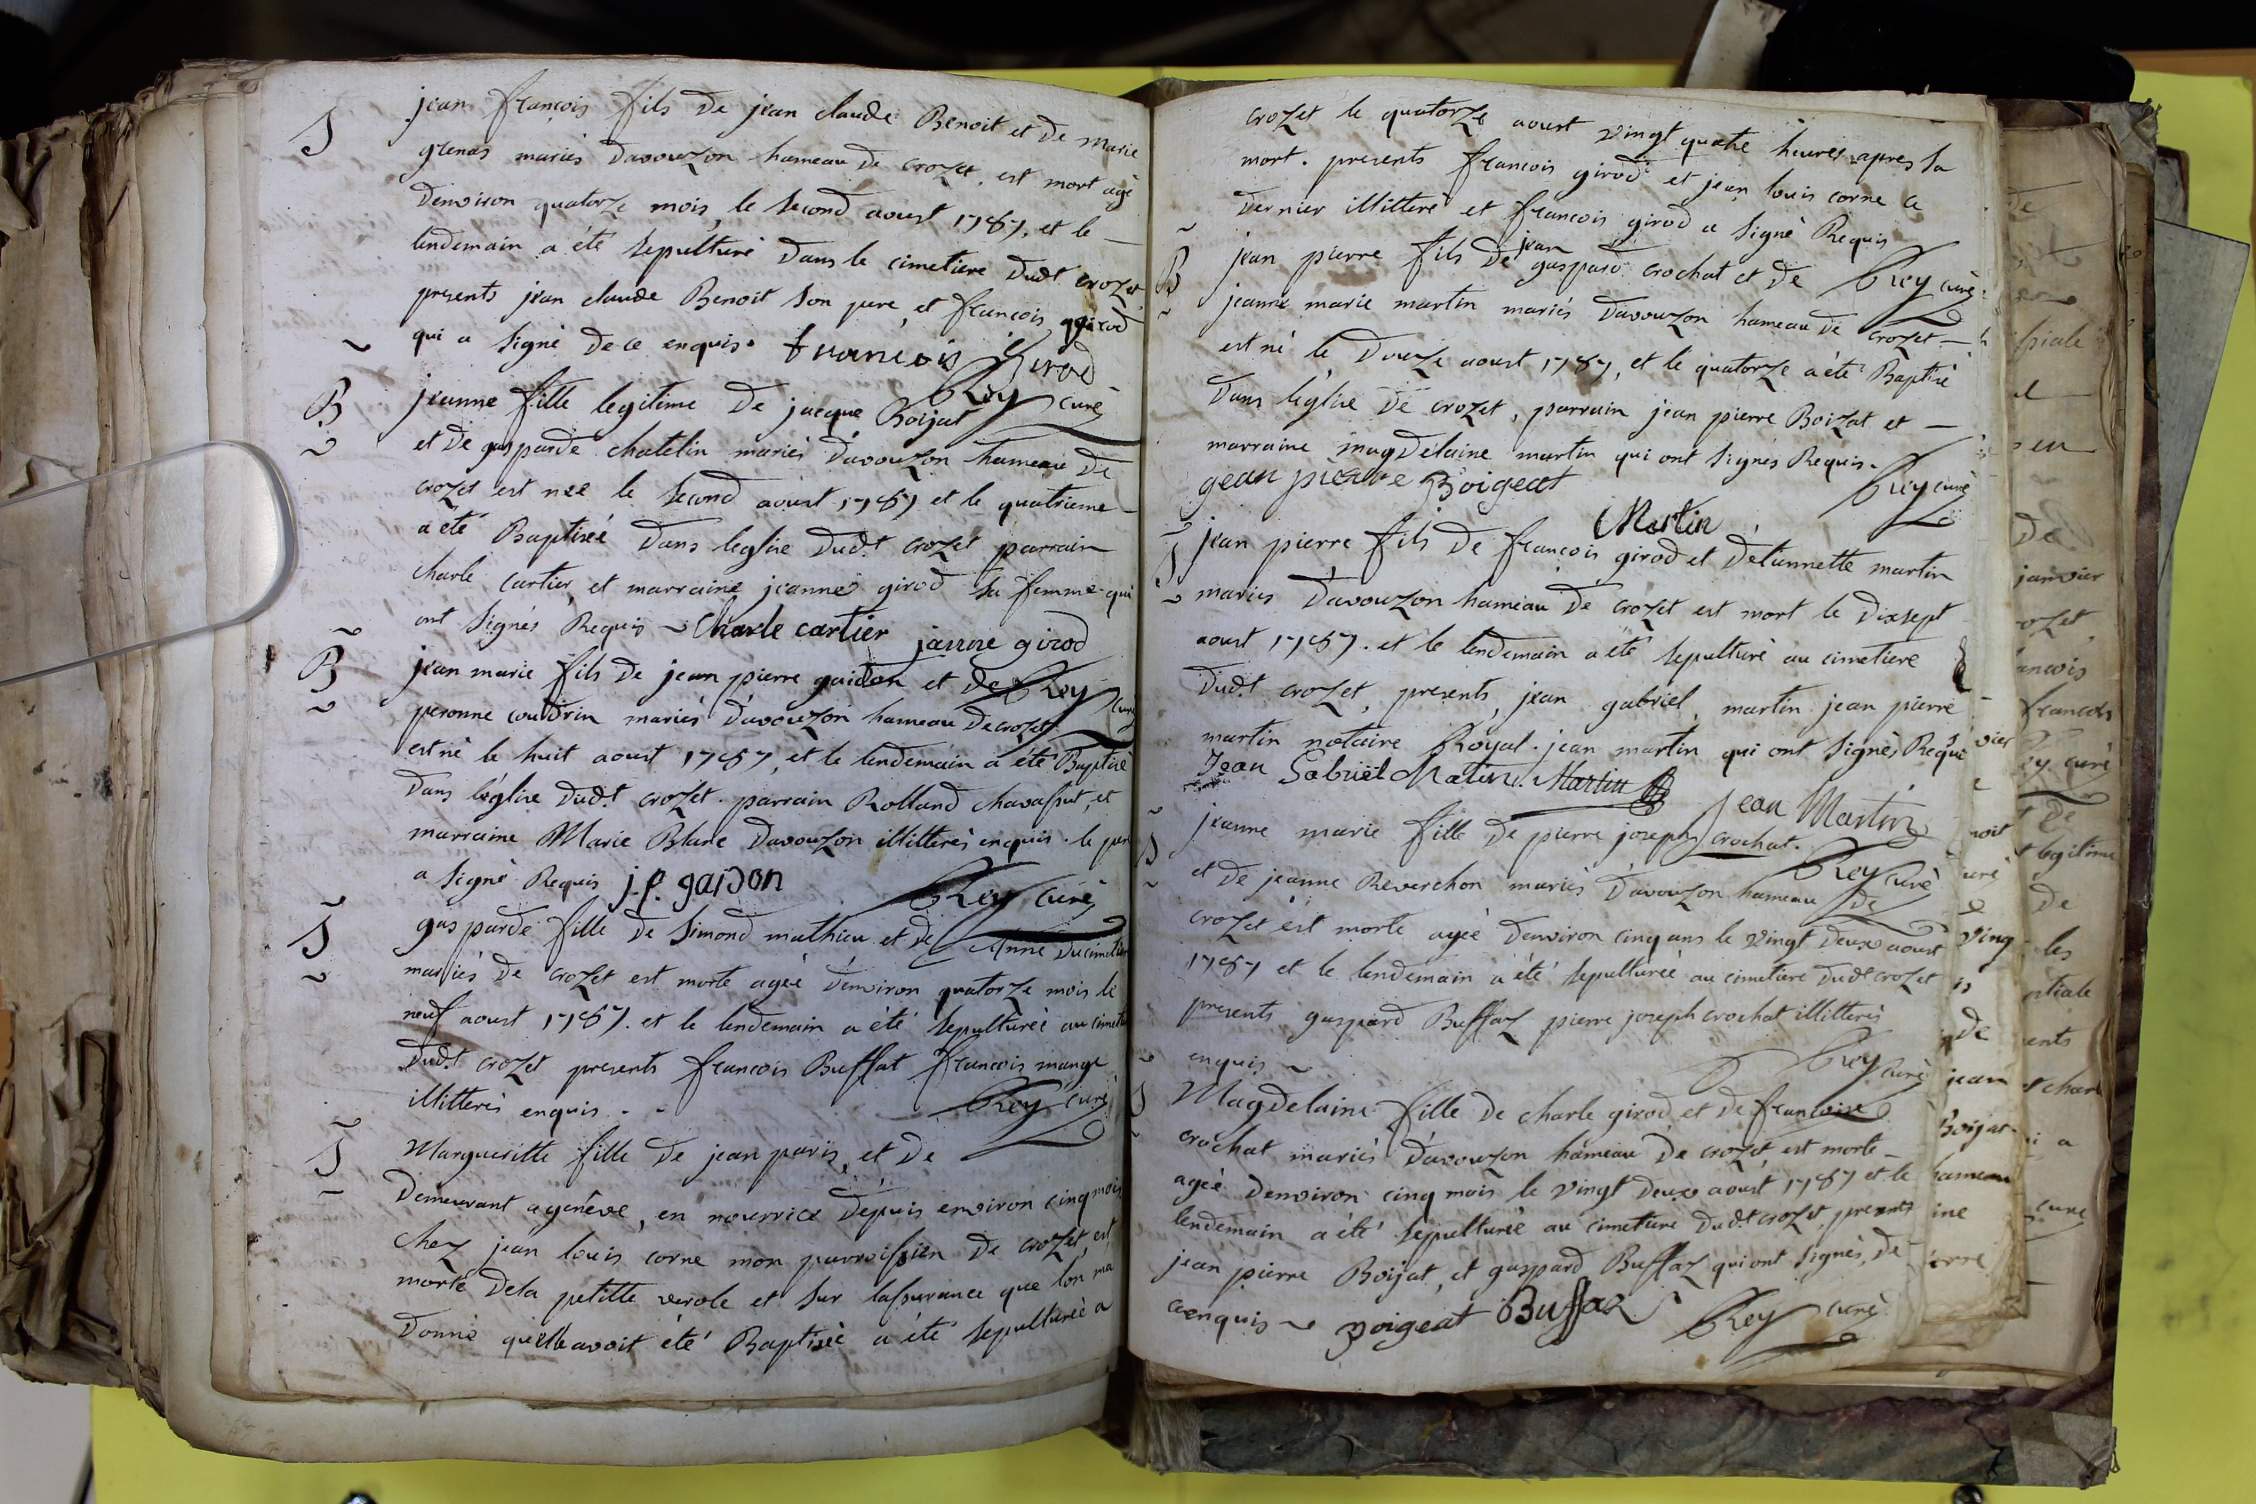 S
jean françois fils de jean claude Benoit et de marie
grenas mariés davouzon hameau de crozet, est mort agé
denviron quatorze mois, le second aoust 1787, et le
lendemain a été sepulturé dans le cimetiere dudt crozet
presents jean claude Benoit son pere, et francois girod
qui a signé de ce enquis. francois Girod
Rey curé
B
jeanne fille legitime de jacque Boijat
et de gasparde chatelin mariés davouzon hameau de
crozet est née le second aoust 1787 et le quatrieme
a été Baptisée dans leglise dudt crozet parrain
charle cartier, et marraine jeanne girod sa femme qui
ont signés Requis Charle cartier janne girod
Rey curé
B
jean marie fils de jean pierre gaidon et de
peronne coudrin mariés davouzon hameau de crozet
est né le huit aoust 1787, et le lendemain a été Baptisé
dans léglise dudt crozet. parrain Rolland chavassut, et
marraine Marie Blanc davouzon illitterés enquis. le pere
a signé Requis j. p. gaidon
Rey curé
S
gasparde fille de simond mathieu et de Anne ducimetier
mariés de crozet est morte agée denviron quatorze mois le
neuf aoust 1787. et le lendemain a été sepulturée au cimet
dudt crozet presents francois Buffat francois mange
illitterés enquis.
Rey curé
S
Margueritte fille de jean paris, et de
demeurant a genéve, en nourrice depuis environ cinq mois
chez jean louis corne mon parroissien de crozet, est
morte dela petitte verole et sur lassurance que lon ma
donné quelle avoit été Baptisée a été sepulturée a
crozet le quatorze aoust vingt quatre heures apres sa
mort. presents francois girod et jean louis corne ce
dernier illitteré et francois girod a signé Requis
Rey curé
B
jean pierre fils de jean gaspard crochat et de
jeanne marie martin mariés davouzon hameau de crozet
est né le douze aoust 1787, et le quatorze a été Baptisé
dans léglise de crozet, parrain jean pierre Boizat et
marraine magdelaine martin qui ont signés Requis.
gean pierre Boigeat
Martin
Rey curé
S
jean pierre fils de francois girod et detiennette martin
mariés davouzon hameau de crozet est mort le dixsept
aoust 1787. et le lendemain a été sepulturé au cimetiere
dudt crozet, presents, jean gabriel, martin jean pierre
martin notaire Royal. jean martin qui ont signés Requis
Jean Gabriel Matin. Martin Jean Martin
Rey curé
S
jeanne marie fille de pierre joseph crochat.
et de jeanne Reverchon mariés davouzon hameau de
crozet est morte agée denviron cinq ans le vingt deux aoust
1787 et le lendemain a été sepulturée au cimetiere dudt crozet
presents gaspard Buffaz pierre joseph crochat illitterés
enquis
Rey curé
S
Magdelaine fille de charle girod et de francoise
crochat mariés davouzon hameau de crozet est morte
agée denviron cinq mois le vingt deux aoust 1787 et le
lendemain a été sepulturée au cimetiere dudt crozet, presents
jean pierre Boijat, et gaspard Buffaz qui ont signés, de
ce enquis Boigeat Buffaz
Rey curé